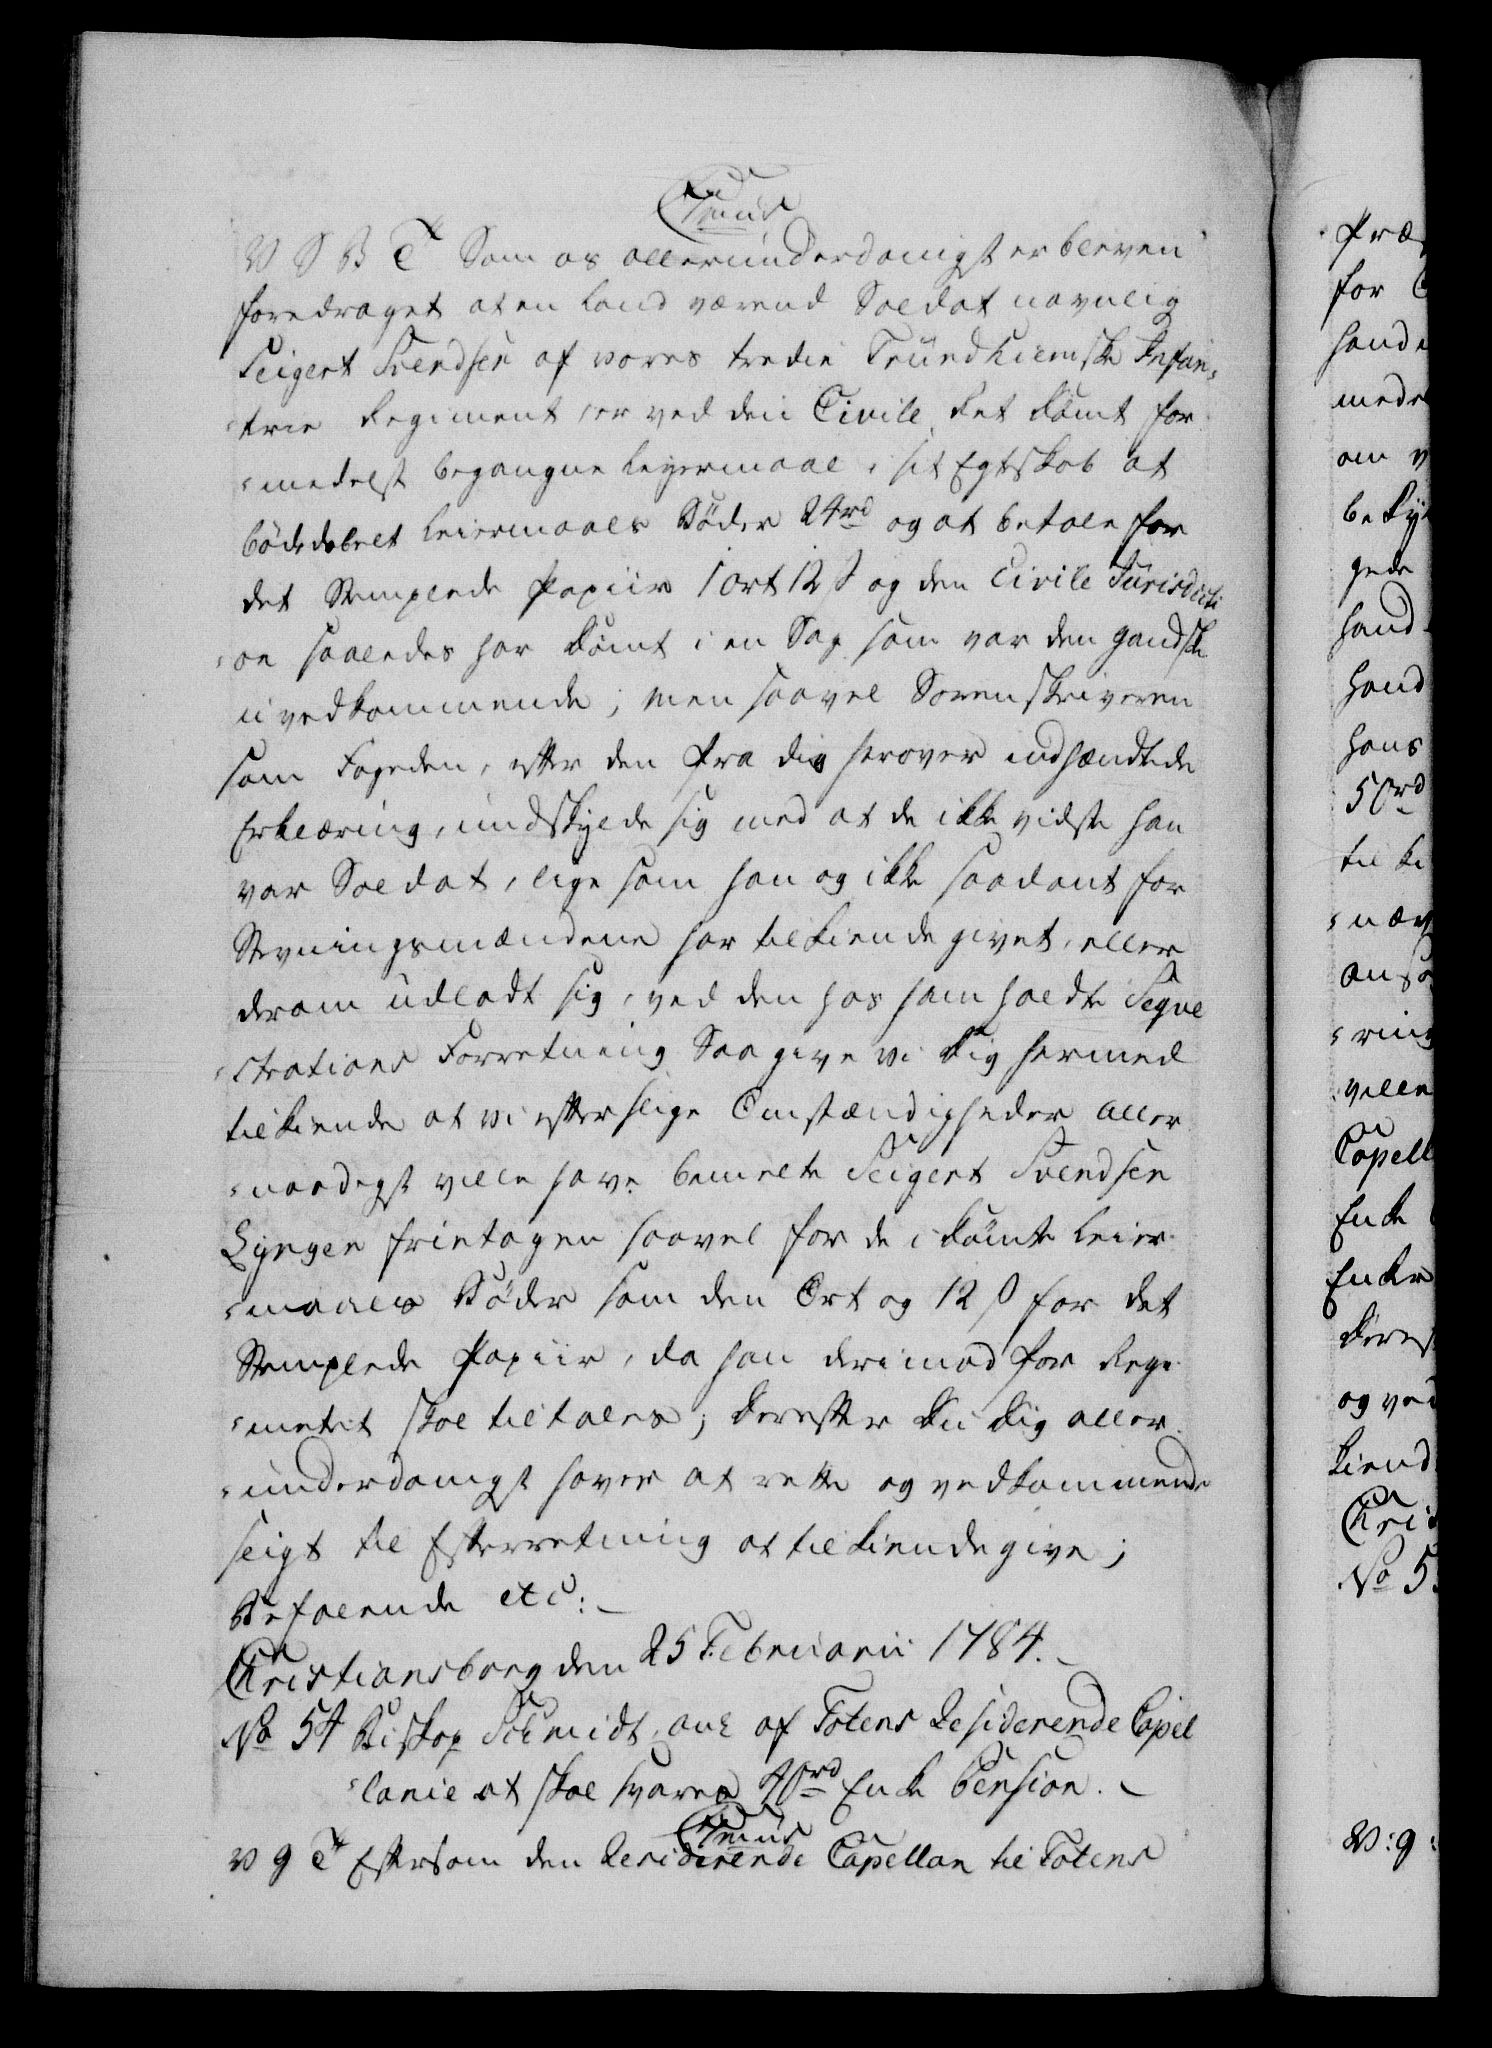 Cmus
V S B T Som os allerunderdanigst er bleven
foredraget at en Land værend Soldat navnlig
Seigert Svendsen af vores tredie Trundhiemske Infan-
-trie Regiment, er ved den Civile Ret dømt for-
-medelst begangne Leyermaal i sit Egteskab at
bøde dobelt Leiermaals Bøder 24 rd og at betale for
det Stemplede Papiir 1 ort 12 s og den Civile Jurisdicti
-on saaledes har dømt i en Sag som var den gandske
uvedkommende; men saavel Sorenskriveren
som Fogeden, efter den fra dig herover indhændtede
Erklæring, undskylde sig med at de ikke vidste han
var Soldat, lige som han og ikke saadant for
Stevningsmændene har tilkiendegivet, eller
derom udladt sig, ved den hos ham holdte Seqve
-strations Forretning Saa give vi Dig hermed
tilkiende at vi efter slige Omstændigheder aller-
-naadigst ville have bemelte Seigert Svendsen
Lyngen frietagen saavel for de idømte Leier-
-maals Bøder som den Ort og 12 s for det
Stemplede Papiir, da han derimod for Regi-
-metet skal tiltales; derefter Du Dig aller-
-underdanigst haver at rette og vedkommende
seigt til Efterretning at tilkiendegive;
Befalende etc:
Christiansborg den 25 Februarii 1784.
No 54 Biskop Schmidt, anl af Totens Residerende Capel
-lanie at skal svares 40 rd Enke Pension.
Cmus
V g T Eftersom den Residerende Capellan til Totens
Præ
for
hand
mede
om v
beky
gede
hand
hand
hans
50 rd
til ki
-næv
ansø
-ring
ville
Capell
Enke
Enker
derest
og ved
kiend
Chris
No 5
V: g: